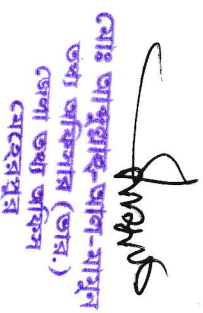 মোঃ আব্দুল্লাহ-আল-মামুন
তথ্য অফিসার (ভার.)
জেলা তথ্য অফিস
মেহেরপুর